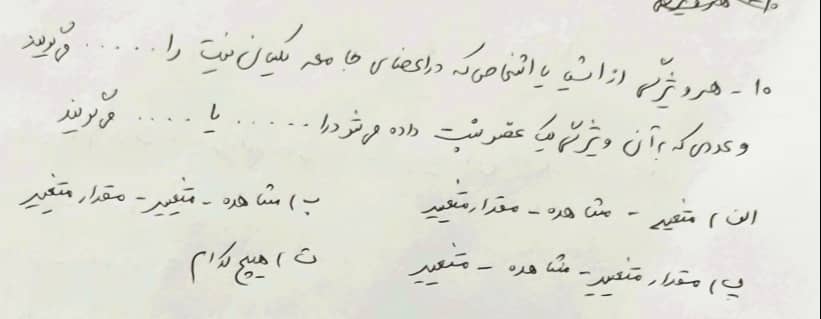 ۱۰ - هر ویژگی از اشیا یا اشخاص که در اعضای جامعه یکسان نیست را ..... می‌گویند
و عددی که به آن ویژگی یک عضو نسبت داده می‌شود را ..... یا .... می‌گویند
الف) متغیر - مشاهده - مقدار متغییر ب) مشاهده - متغییر - مقدار متغییر
پ) مقدار متغییر - مشاهده - متغییر ت) هیچ کدام